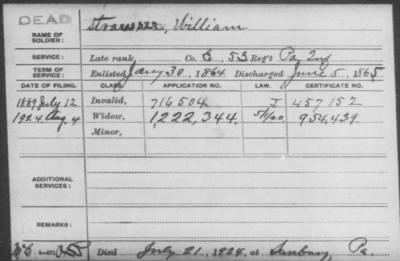 DEAD
NAME OF SOLDIER: Strausser, William
SERVICE: Late rank, Co. B 53 Reg't Pa Inf
TERM OF SERVICE: Enlisted Jany 30, 1864 Discharged June 5, 1865
DATE OF FILING. CLASS APPLICATION NO. LAW. CERTIFICATE NO.
1889 July 12 Invalid, 716504 J 457152
1924 Aug. 4 Widow, 1,222,344, 954,439
Minor,
ADDITIONAL SERVICES:
REMARKS:
Died July 21, 1924, at Sunbury, Pa.